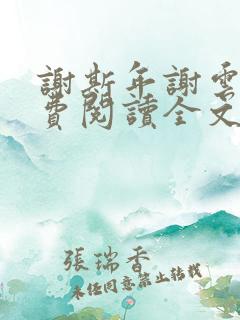 謝斯年謝雲
費閱讀全文
張瑞香
未經同意禁止轉載